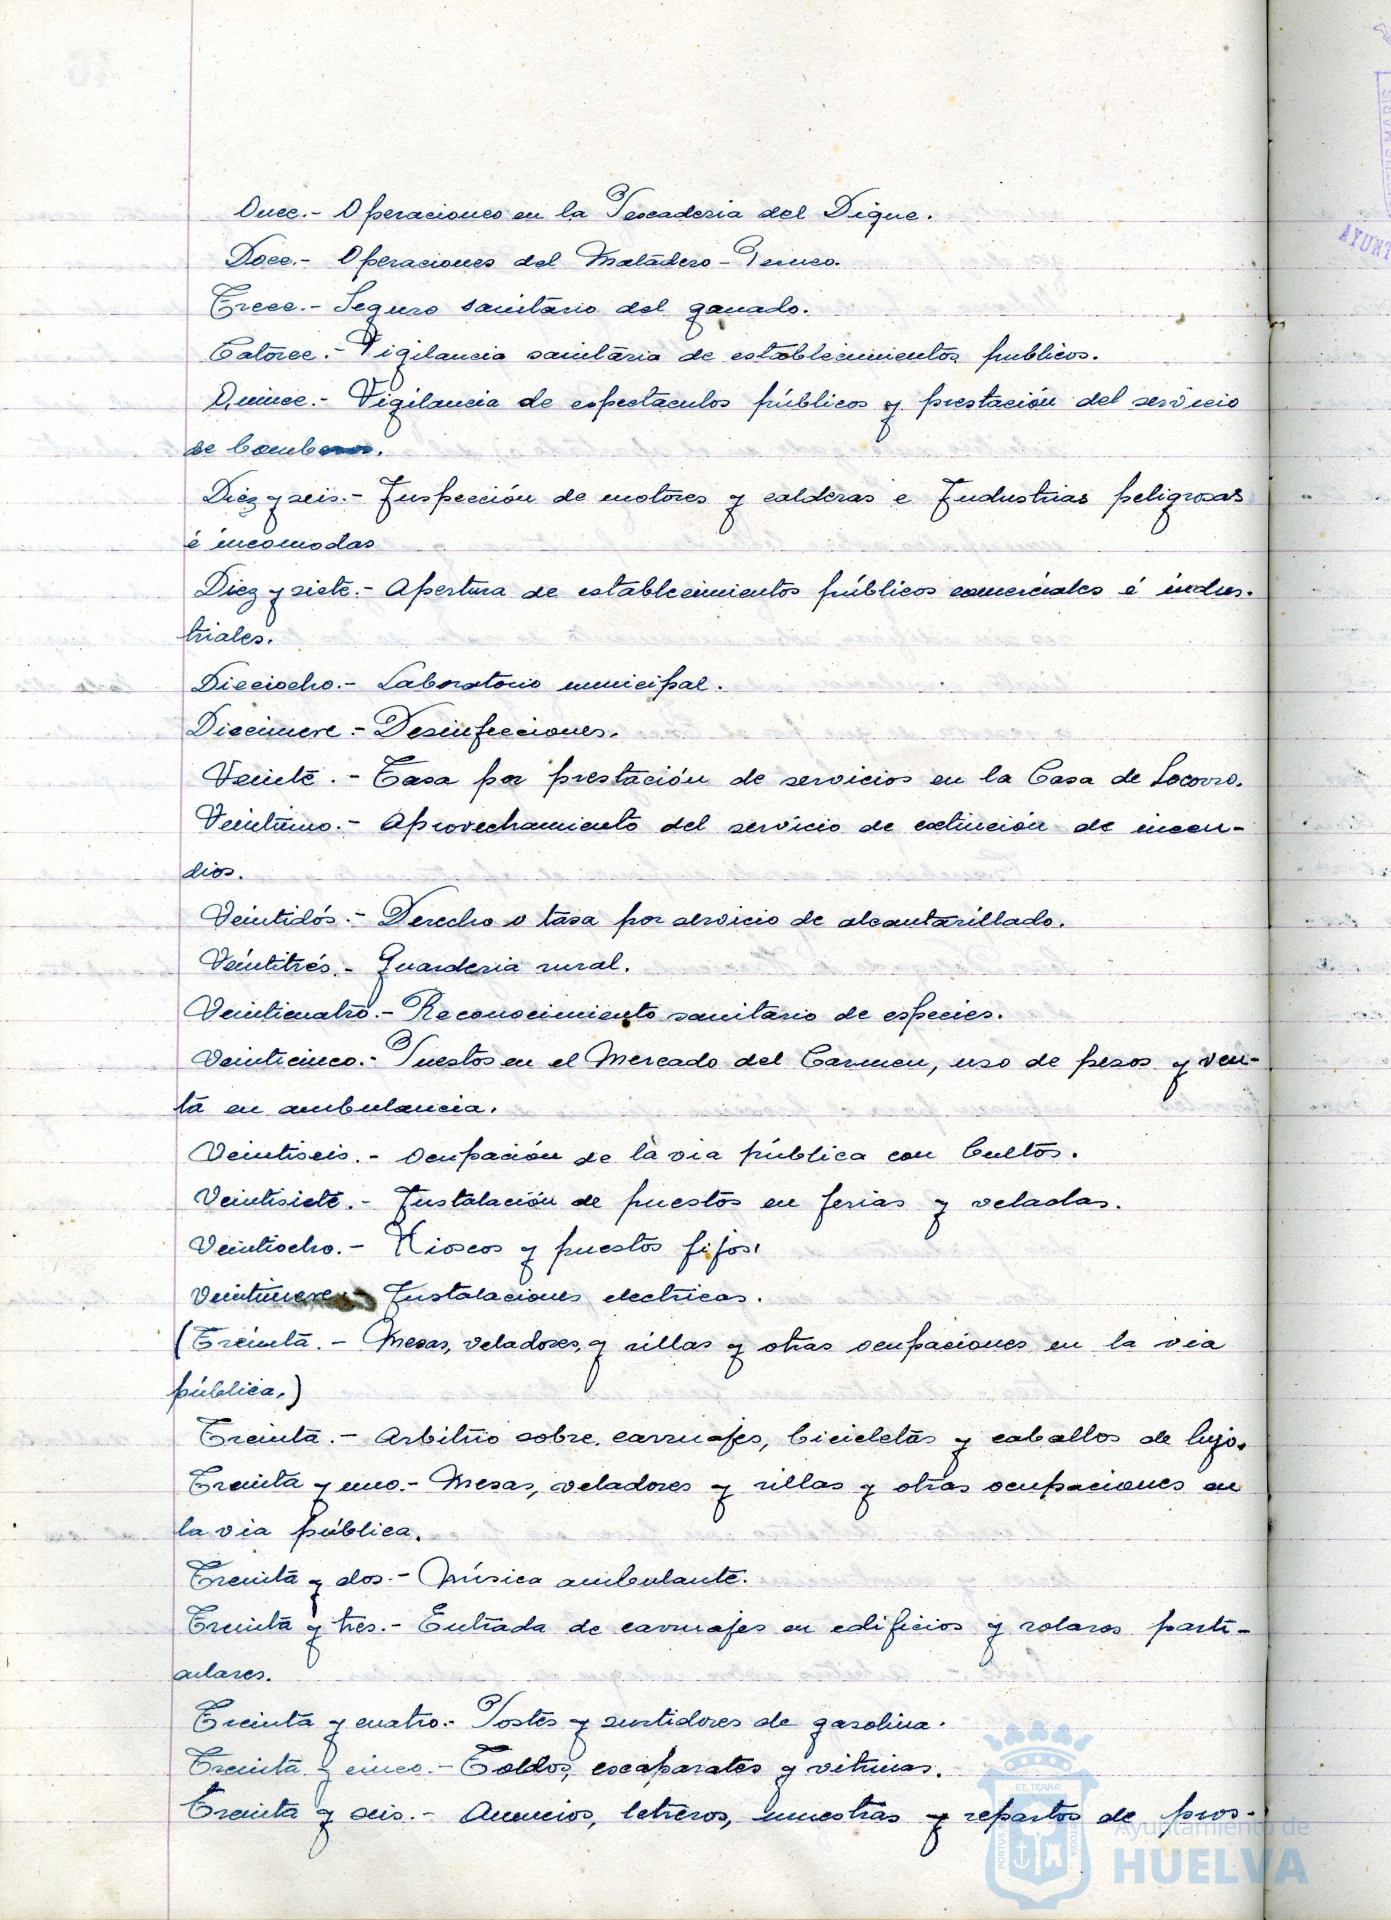 Once.- Operaciones en la Pescaderia del Dique.
Doce.- Operaciones del Matadero-
Trece.- Seguro sanitario del ganado.
Catorce.- Vigilancia sanitaria de establecimientos publicos.
Quince.- Vigilancia de espectaculos públicos y prestación del servicio
de bomberos.
Diez y seis.- Inspección de motores y calderas e Industrias peligrosas
é incomodas
Diez y siete.- Apertura de establecimientos públicos comerciales é indus-
triales.
Dieciocho.- Laboratorio municipal.
Diecinueve.- Desinfecciones.
Veinte.- Tasa por prestación de servicios en la Casa de Socorro.
Veintiuno.- Aprovechamiento del servicio de extinción de incen-
dios.
Veintidós.- Derecho o tasa por servicio de alcantarillado.
Veintitrés.- Guarderia rural.
Veinticuatro.- Reconocimiento sanitario de especies.
Veinticinco.- Puestos en el Mercado del Carmen, uso de pesos y ven-
ta en ambulancia.
Veintiseis.- Ocupación de la via pública con bultos.
Veintisiete.- Instalación de puestos en ferias y veladas.
Veintiocho.- Kioscos y puestos fijos.
Veintinueve.- Instalaciones electricas.
(Treinta.- Mesas, veladores, y sillas y otras ocupaciones en la via
pública.)
Treinta.- Arbitrio sobre carruajes, bicicletas y caballos de lujo.
Treinta y uno.- Mesas, veladores y sillas y otras ocupaciones en
la via pública.
Treinta y dos.- Música ambulante.
Treinta y tres.- Entrada de carruajes en edificios y solares parti-
culares.
Treinta y cuatro.- Postes y surtidores de gasolina.
Treinta y cinco.- Toldos, escaparates y vitrinas.
Treinta y seis.- Anuncios, letreros, muestras y repartos de pros-
ET TERRÆ
PORTUS
CUSTODIA
Ayuntamiento de
HUELVA
AYUNT